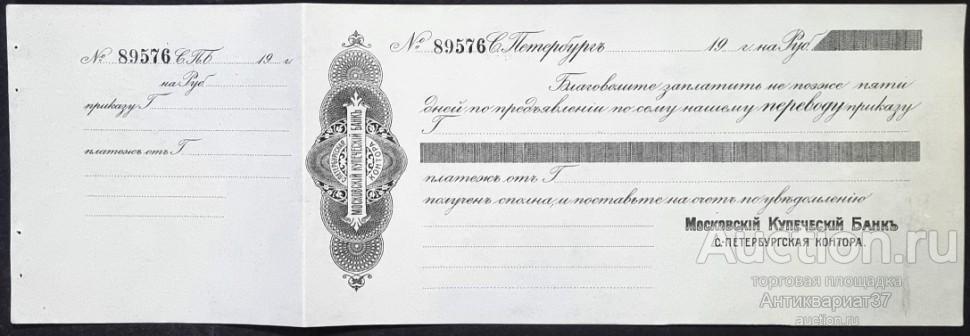 № 89576 С.П.б. 19 г
на Руб.
приказу Г
платежъ отъ Г
С.ПЕТЕРБУРГСКАЯ
МОСКОВСКІЙ КУПЕЧЕСКІЙ БАНКЪ
КОНТОРА
№ 89576 С. Петербургъ 19 г. на Руб.
Благоволите заплатить не позже пяти
дней по предъявленіи по сему нашему переводу приказу
Г
платежъ отъ Г
полученъ сполна, и поставьте на счетъ по увѣдомленію
МОСКОВСКІЙ КУПЕЧЕСКІЙ БАНКЪ
С.-ПЕТЕРБУРГСКАЯ КОНТОРА.
Auction.ru
торговая площадка
Антиквариат37
auction.ru